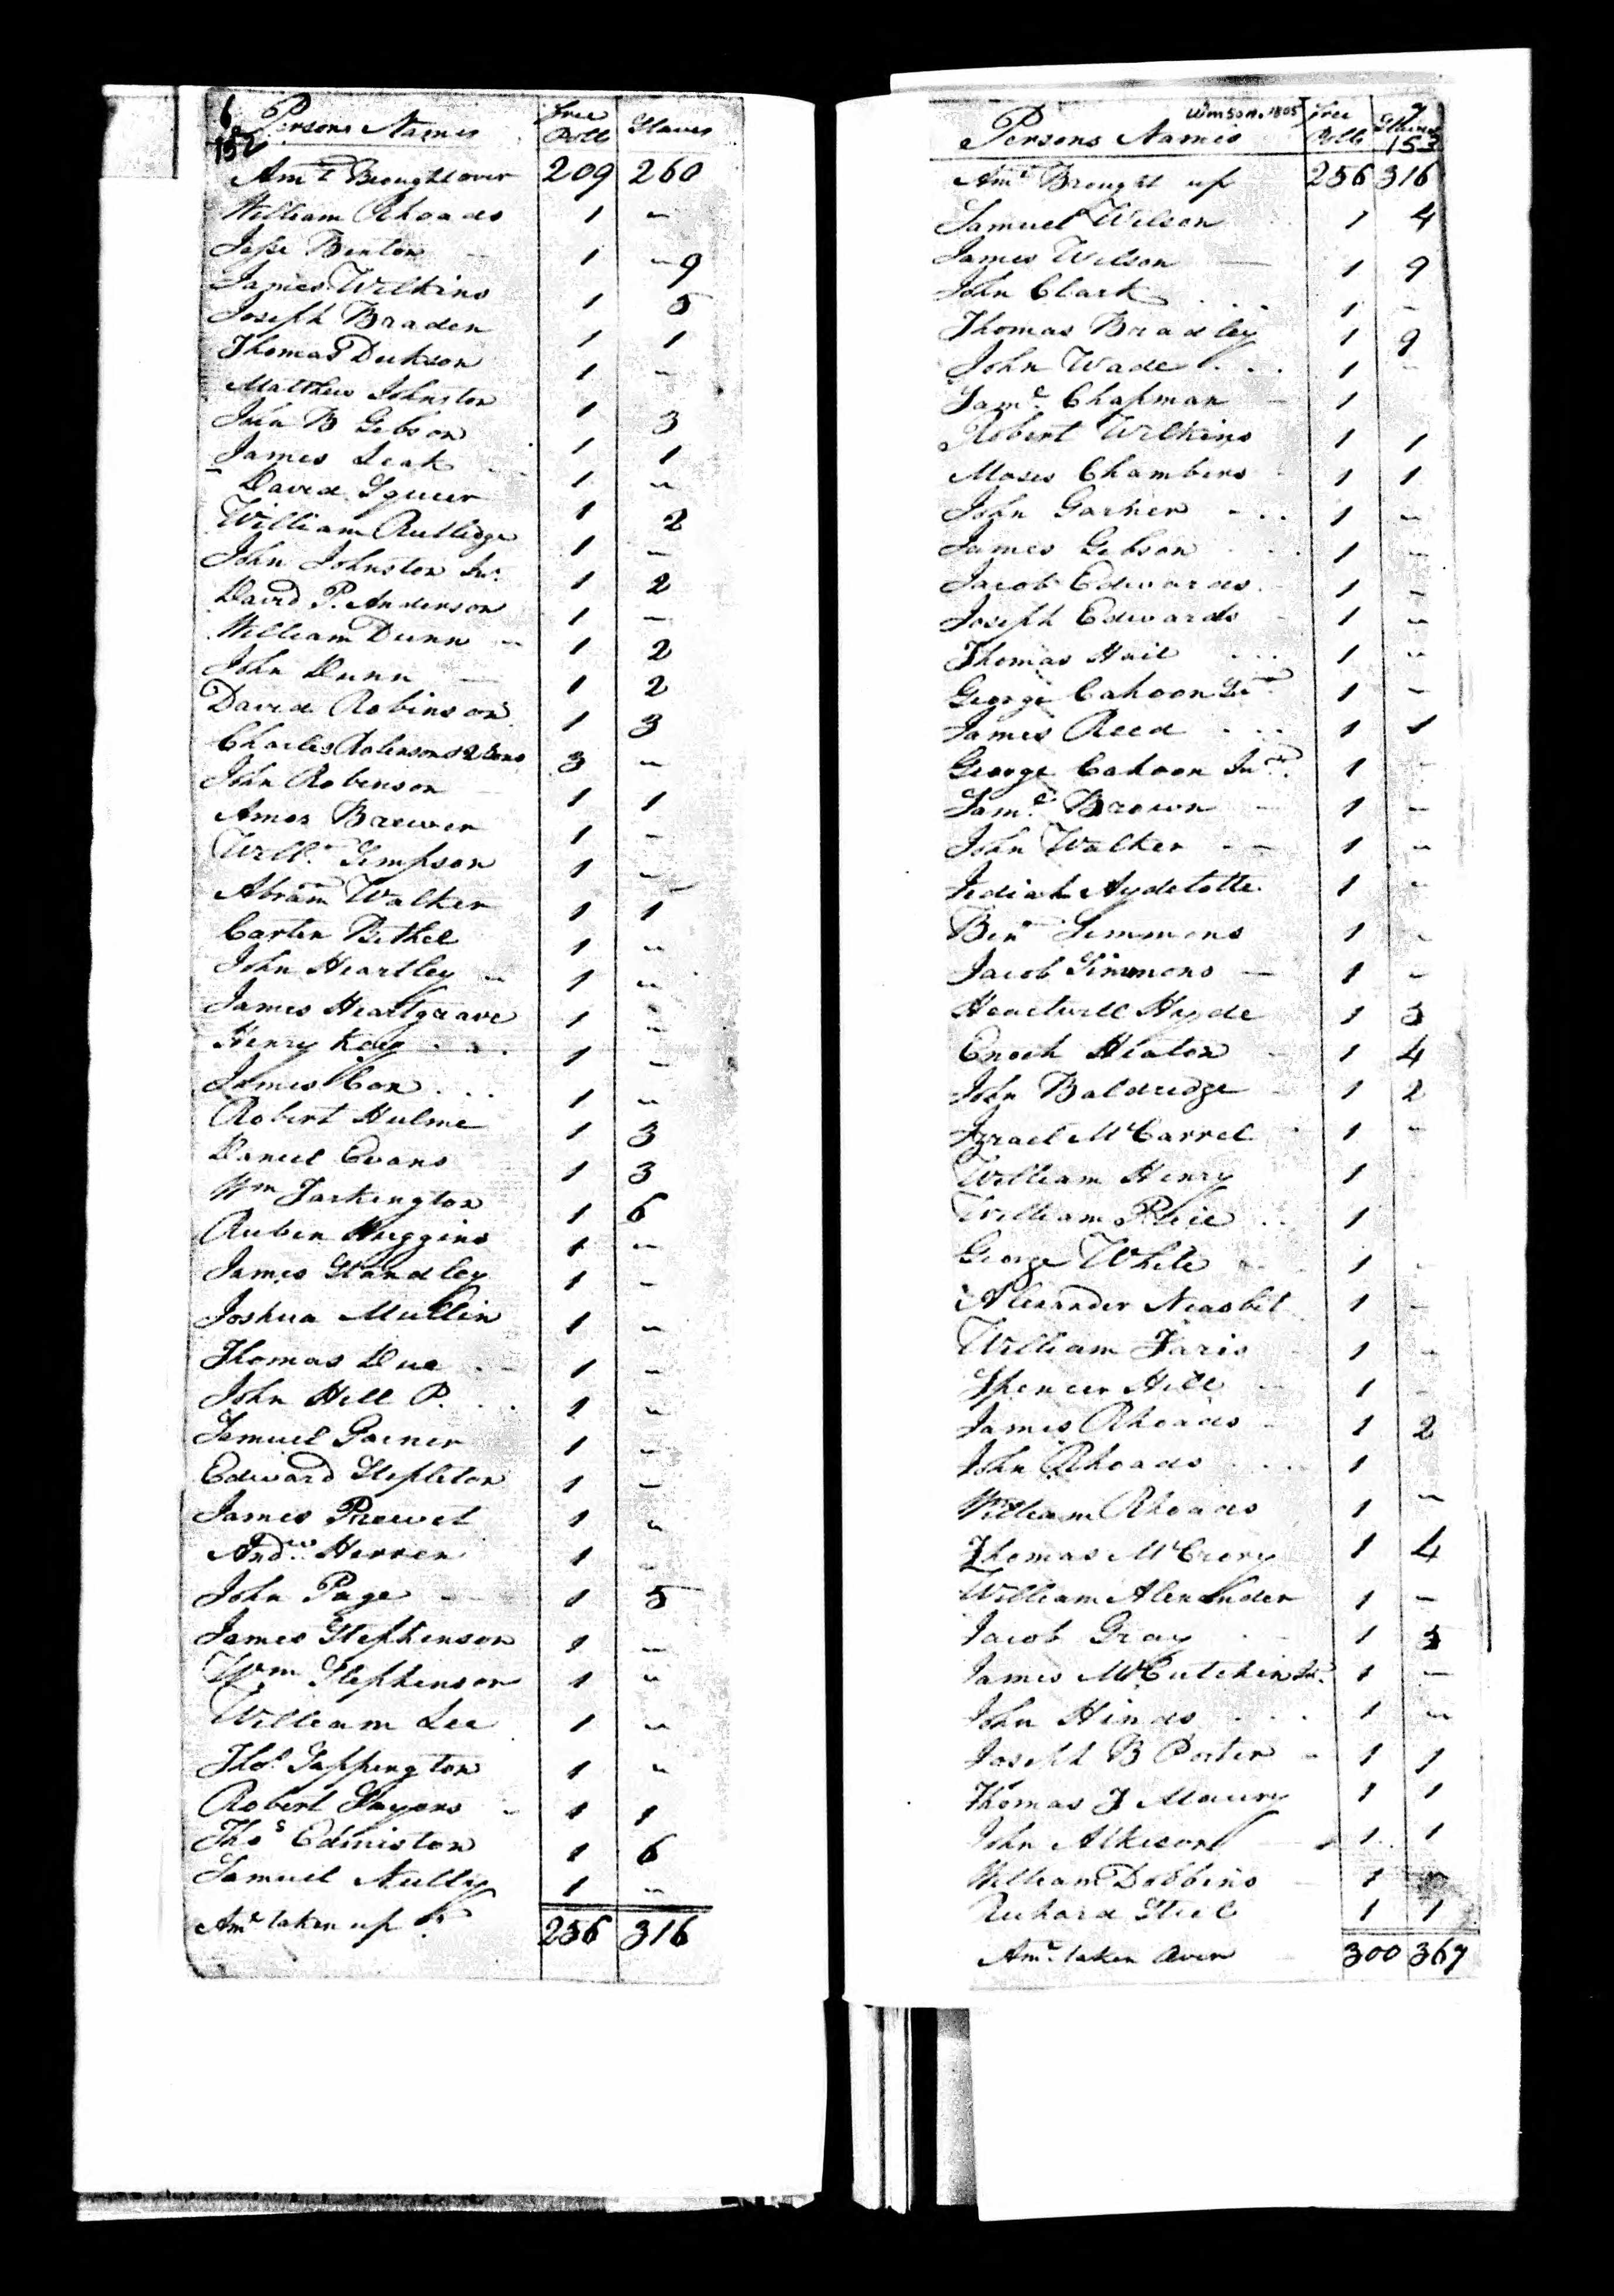 6
152
Persons Names Free Poll Slaves
Amt Brought over 209 260
William Rhoads 1 -
Jesse Benton 1 - 9
James Wilkins 1 5
Joseph Braden 1 1
Thomas Dickson 1 -
Matthew Johnston 1 3
John B Gibson 1 1
James Leak 1 -
David Squier 1 2
William Rutledge 1 -
John Johnston Jr. 1 2
David P. Anderson 1 -
William Dunn - 1 2
John Dunn - 1 2
David Robinson 1 3
Charles Robinson & 2 Sons 3 -
John Robinson 1 1
Amos Brewer 1 -
Willm Simpson 1 -
Abram Walker 1 1
Carter Bethel 1 -
John Heartley - 1 -
James Heartgrave 1 -
Henry Key . . . 1 -
James Cox . . . 1 -
Robert Hulme 1 3
Daniel Evans 1 3
Wm Tarkington 1 6
Ruben Huggins 1 -
James Standley 1 -
Joshua Mullin 1 -
Thomas Due - 1 -
John Hill P. . . 1 -
Samuel Garner 1 -
Edward Stepleton 1 -
James Prewet 1 -
Andw. Herren 1 -
John Page - 1 5
James Stephenson 1 -
Wm Stephenson 1 -
William Lee 1 -
Thos. Sappington 1 -
Robert Sayers - 1 1
Thos Edmiston 1 6
Samuel Nully 1 -
Amt taken up 256 316
Wmson. 1805 7
Persons Names Free Polls Slaves
153
Amt Brought up 256 316
Samuel Wilson 1 4
James Wilson - 1 9
John Clark . . . 1 -
Thomas Bradley 1 9
John Wade . . . 1 -
Saml. Chapman - 1
Robert Wilkins 1 1
Moses Chambers 1 1
John Garner - . . 1 -
James Gibson . . . 1 -
Jacob Edwards - 1 -
Joseph Edwards - 1 -
Thomas Hail . . . 1 -
George Cahoon Sr. 1 -
James Reed . . . 1 1
George Cahoon Jnr. 1 -
Saml. Brown - 1 -
John Walker - - 1 -
Jediah Aydelotte 1 -
Benn Simmons 1 -
Jacob Simmons - 1 -
Heartwell Hyde 1 3
Enoch Heaton - 1 4
John Baldridge - 1 2
Izrael McCarrel 1 -
William Henry 1
William Price . . 1
George White 1 -
Alexander Neasbit 1 -
William Faris 1 -
Spencer Hill - 1 -
James Rhoads - 1 2
John Rhoads . . . 1
William Rhoads 1 -
Thomas McCrory 1 4
William Alexander 1 -
Jacob Gray - 1 3
James McCutchin Sr. 1 -
John Hinds . . . 1 -
Joseph B Porter - 1 1
Thomas J Maury 1 1
John Atkison 1 1
William Dobbins - 1 -
Richard Steel 1 1
Amt. taken Over 300 367